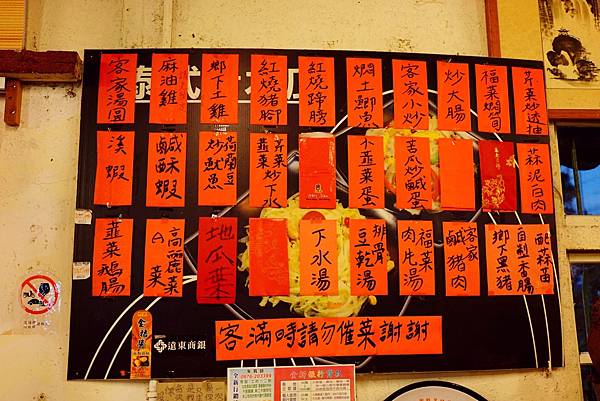 客家湯圓
麻油雞
鄉下土雞
紅燒豬腳
紅燒蹄膀
燜土鯽魚
客家小炒
炒大腸
福菜燜筍
芹菜炒透抽
溪蝦
鹹酥蝦
荷蘭豆
炒魷魚
芹菜
韭菜 炒下水
小韭菜蛋
苦瓜炒鹹蛋
蒜泥白肉
韭菜鵝腸
高麗菜
A菜
地瓜菜
下水湯
排骨
豆乾湯
福菜
肉片湯
客家
鹹豬肉
配蒜苗
自製香腸
鄉下黑豬
客滿時請勿催菜謝謝
遠東商銀